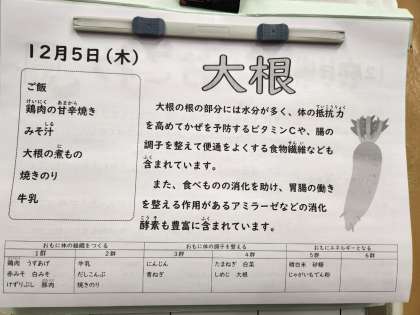 12月5日(木)
大根
ご飯
鶏肉の甘辛焼き
みそ汁
大根の煮もの
焼きのり
牛乳
大根の根の部分には水分が多く、体の抵抗力
を高めてかぜを予防するビタミンCや、腸の
調子を整えて便通をよくする食物繊維なども
含まれています。
また、食べものの消化を助け、胃腸の働き
を整える作用があるアミラーゼなどの消化
酵素も豊富に含まれています。
おもに体の組織をつくる おもに体の調子を整える おもにエネルギーとなる
1群 2群 3群 4群 5群 6群
鶏肉 うすあげ 牛乳 にんじん たまねぎ 白菜 精白米 砂糖
赤みそ 白みそ だしこんぶ 青ねぎ しめじ 大根 じゃがいもでん粉
けずりぶし 豚肉 焼きのり